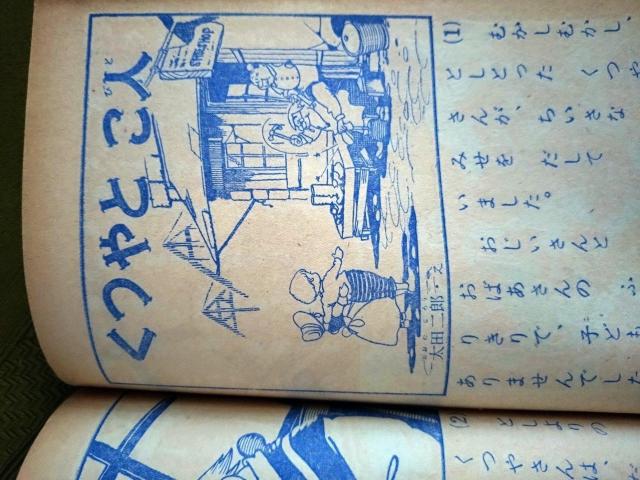 くつやとこ人
太田二郎・え
(1) むかしむかし、
としとった くつや
さんが、ちいさな
みせを だして
いました。
おじいさんと
おばあさんの ふ
りきりで、子ども
ありませんでした
(2) としよりの
くつやさんは、